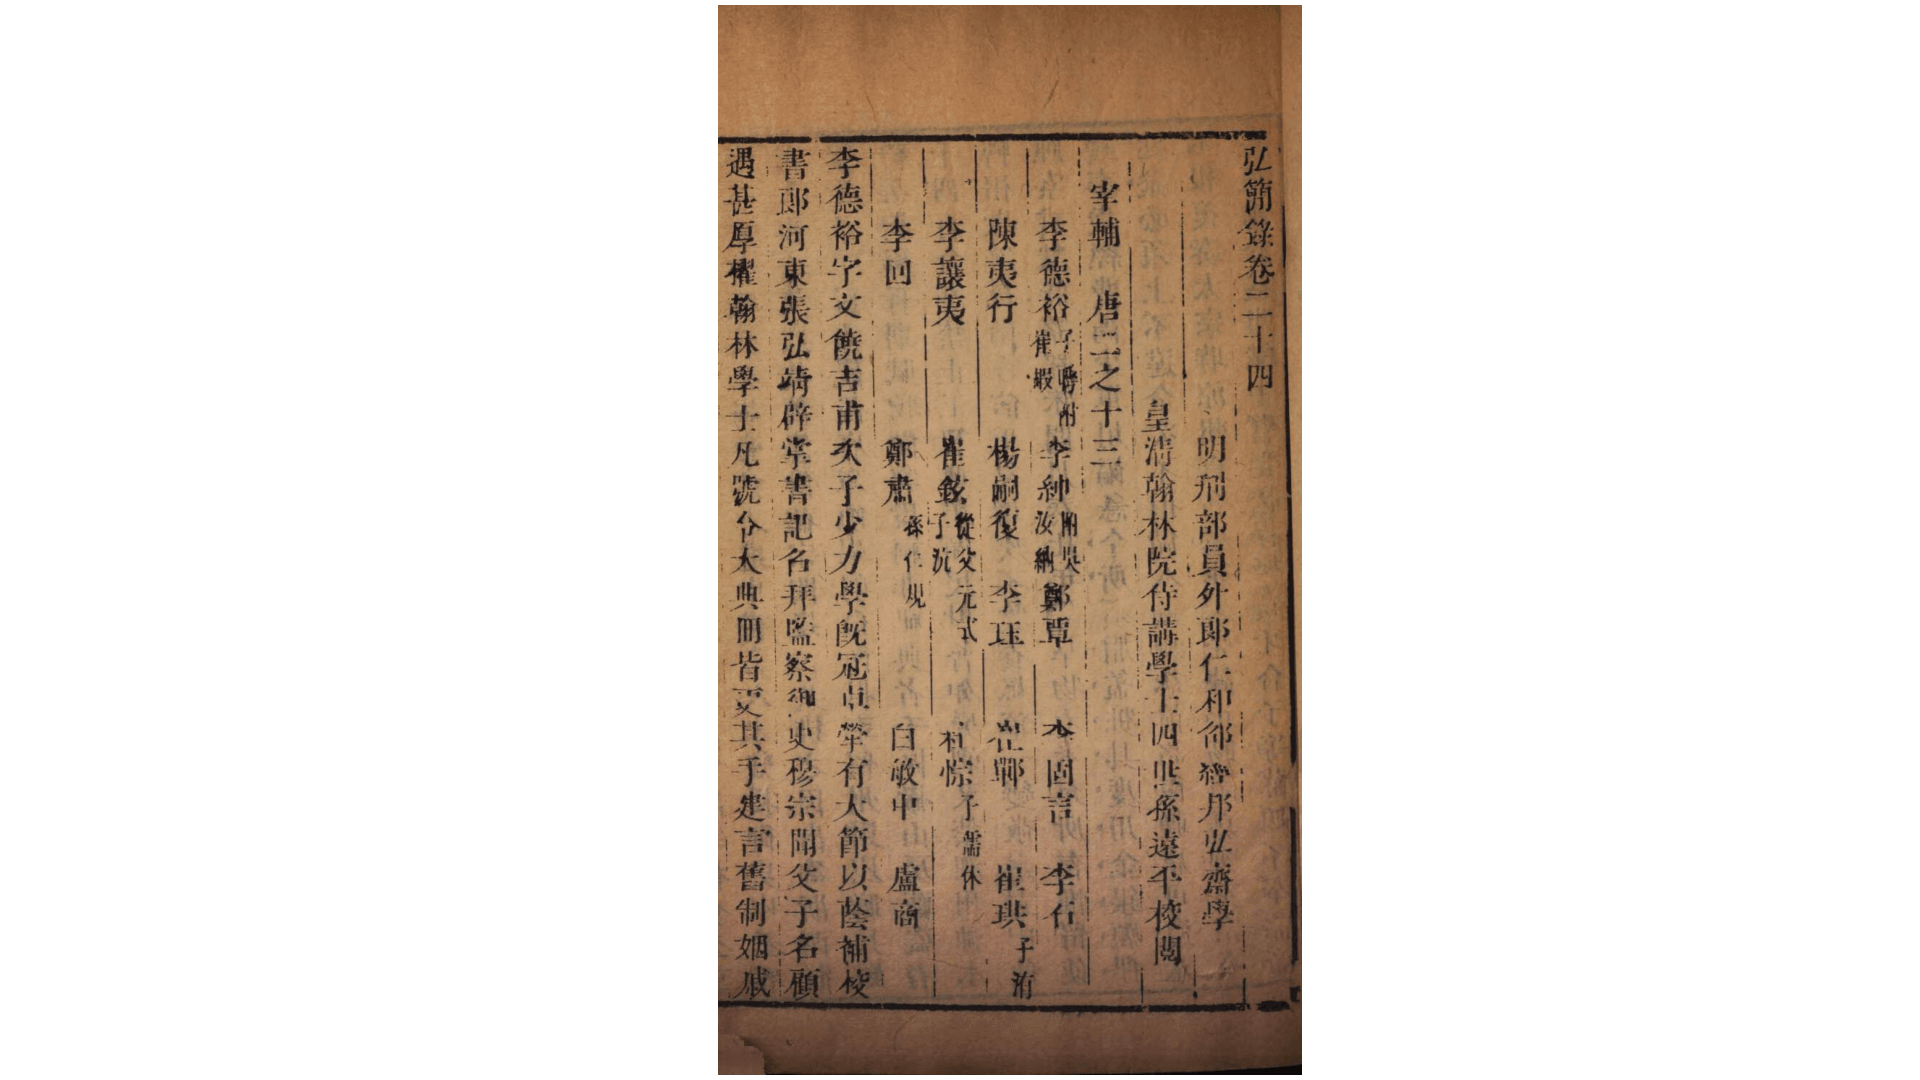 弘簡錄卷二十四
明刑部員外郎仁和邵經邦弘齋學
皇淸翰林院侍講學士四世孫遠平校閱
宰輔 唐二之十三
李德裕 子燁附崔嘏 李紳 附吳汝納 鄭覃 李固言 李石
陳夷行 楊嗣復 李珏 崔鄲 崔珙 子涓
李讓夷 崔鉉 從父元式子沆 杜悰 子孺休
李回 鄭肅 孫仁規 白敏中 盧商
李德裕字文饒吉甫次子少力學既冠卓犖有大節以蔭補校
書郎河東張弘靖辟掌書記名拜監察御史穆宗聞父子名顧
遇甚厚擢翰林學士凡號令大典冊皆更其手建言舊制姻戚